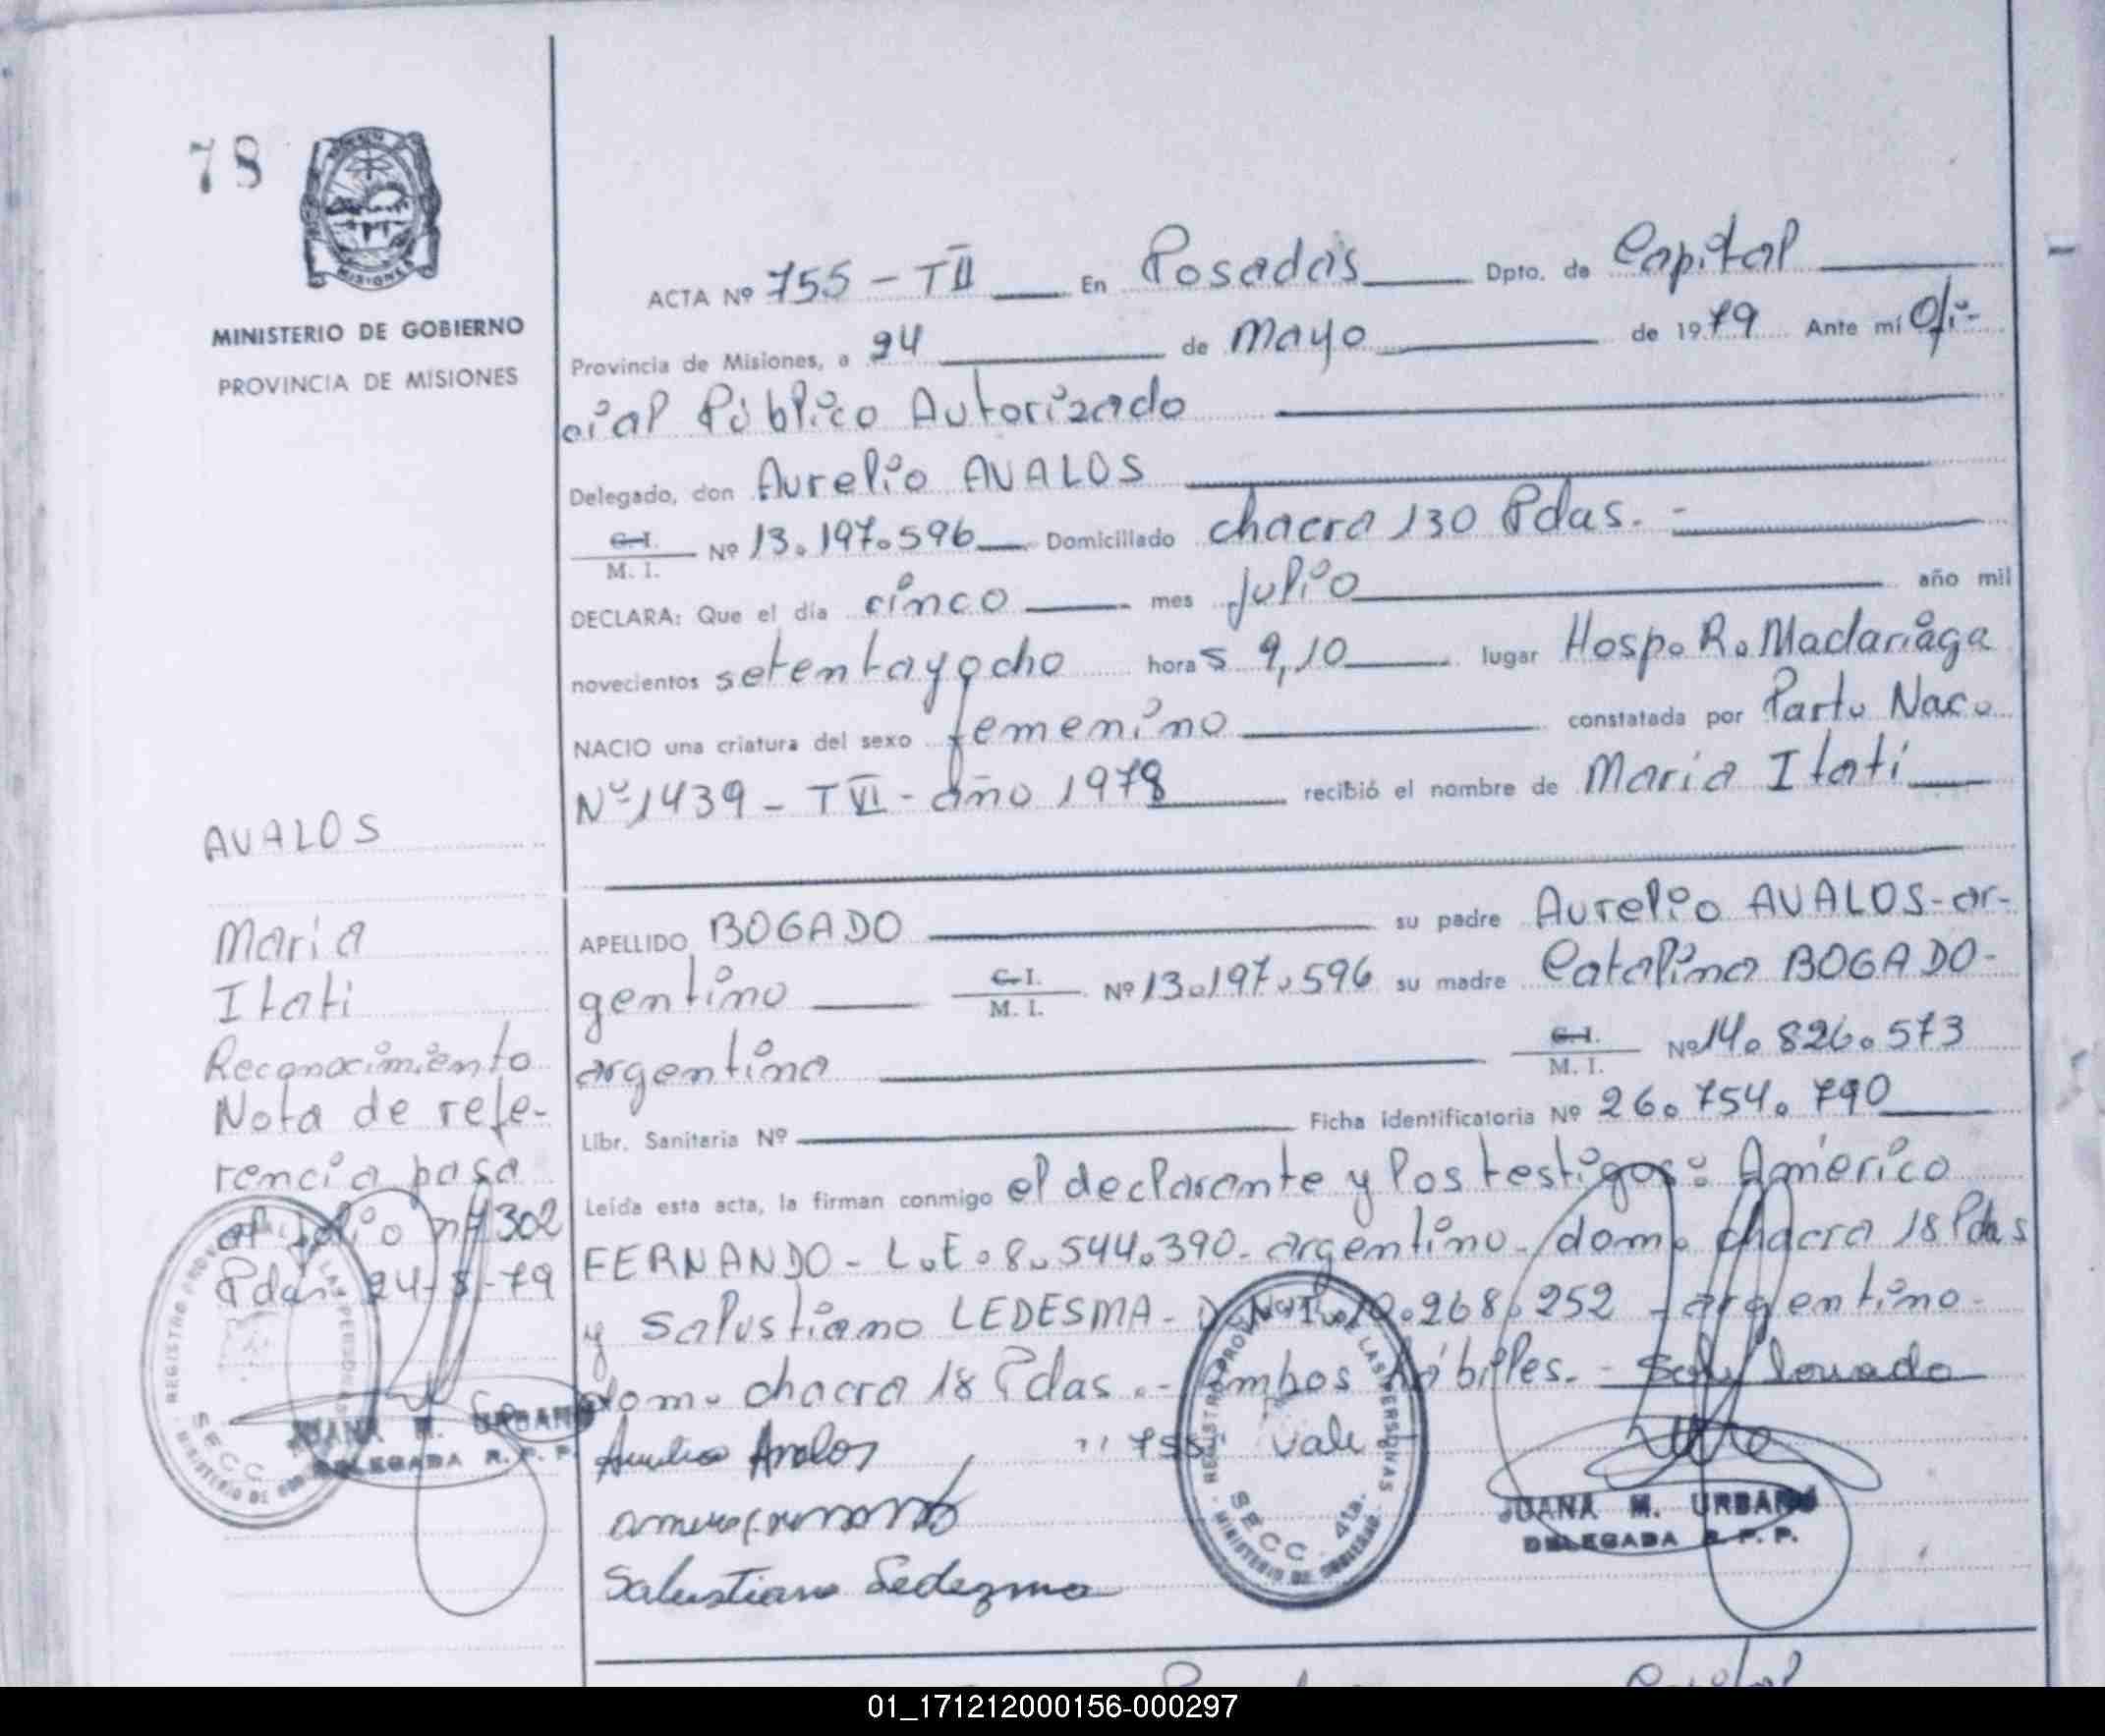 78
MISIONES
MINISTERIO DE GOBIERNO
PROVINCIA DE MISIONES
AVALOS
Maria
Itati
Reconocimiento
Nota de refe-
rencia pasa
al folio nº 302
Pdas 24-5-79
JUANA M. URBANO
DELEGADA R. P. P.
ACTA Nº 755 - TII En Posadas Dpto. de Capital
Provincia de Misiones, a 24 de Mayo de 1979 Ante mí Ofi-
cial Público Autorizado
Delegado, don Aurelio AVALOS
C.I. M. I. Nº 13.197.596 Domiciliado chacra 130 Pdas. -
DECLARA: Que el día cinco mes julio año mil
novecientos setentayocho horas 9,10 lugar Hosp. R. Madariaga
NACIO una criatura del sexo femenino constatada por Parte Nac.
Nº 1439 - TVI - año 1978 recibió el nombre de Maria Itati
APELLIDO BOGADO su padre Aurelio AVALOS - ar-
gentino C.I. M. I. Nº 13.197.596 su madre Catalina BOGADO -
argentina C.I. M. I. Nº 14.826.573
Libr. Sanitaria Nº Ficha identificatoria Nº 26.754.790
Leída esta acta, la firman conmigo el declarante y los testigos: Américo
FERNANDO - L.E. 8.544.390 - argentino - dom. chacra 18 Pdas
y Salustiano LEDESMA - D.N.I. 10.268.252 - argentino -
dom. chacra 18 Pdas. - Ambos hábiles. -
Aurelio Avalos "755" vale
Salustiano Ledezma
REGISTRO PROVINCIAL DE LAS PERSONAS
SECC. 4ta.
MINISTERIO DE GOBIERNO
JUANA M. URBANO
DELEGADA R. P. P.
01_171212000156-000297